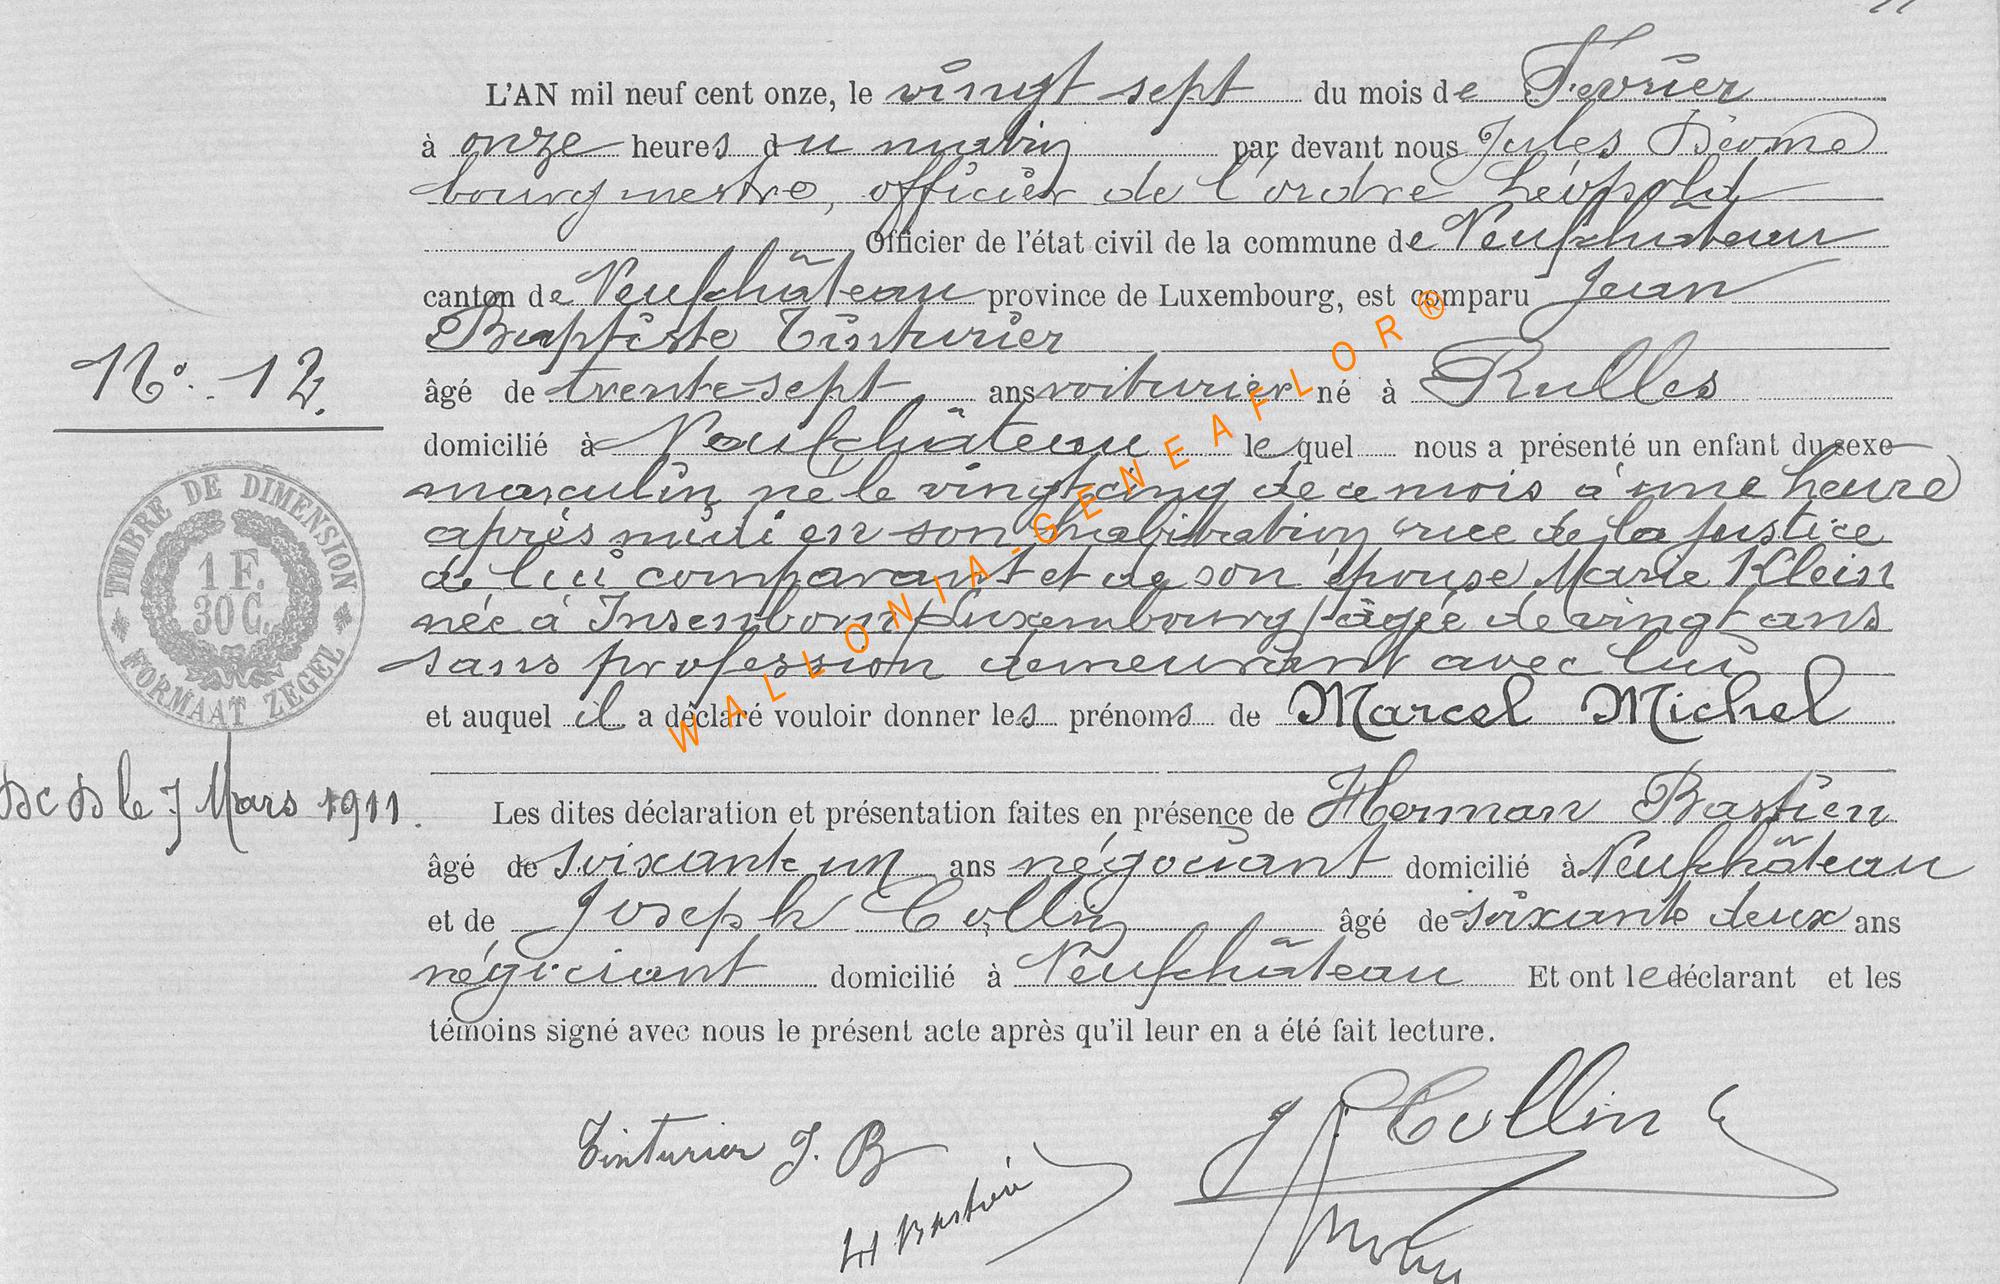 L'AN mil neuf cent onze, le vingt sept du mois de Fevrier
à onze heures du matin par devant nous Jules
bourgmestre, officier de l'ordre Léopold
Officier de l'état civil de la commune de Neufchâteau
canton de Neufchâteau province de Luxembourg, est comparu Jean
Baptiste Tinturier
N°. 12.
âgé de trente-sept ans voiturier né à Rulles
domicilié à Neufchâteau lequel nous a présenté un enfant du sexe
masculin né le vingt cinq de ce mois à une heure
après midi en son habitation rue de la Justice
de lui comparant et de son épouse Marie Klein
née à Insenborn /Luxembourg/ âgée de vingt ans
sans profession demeurant avec lui
TIMBRE DE DIMENSION
1 F.
30 C.
FORMAAT ZEGEL
et auquel il a déclaré vouloir donner les prénoms de Marcel Michel
DCD le 7 Mars 1911.
Les dites déclaration et présentation faites en présence de Herman Bastien
âgé de soixante un ans négociant domicilié à Neufchâteau
et de Joseph Collin âgé de soixante deux ans
négociant domicilié à Neufchâteau Et ont le déclarant et les
témoins signé avec nous le présent acte après qu'il leur en a été fait lecture.
Tinturier J. B
H Bastien
J Collin
WALLONIA-GENEAFLOR®